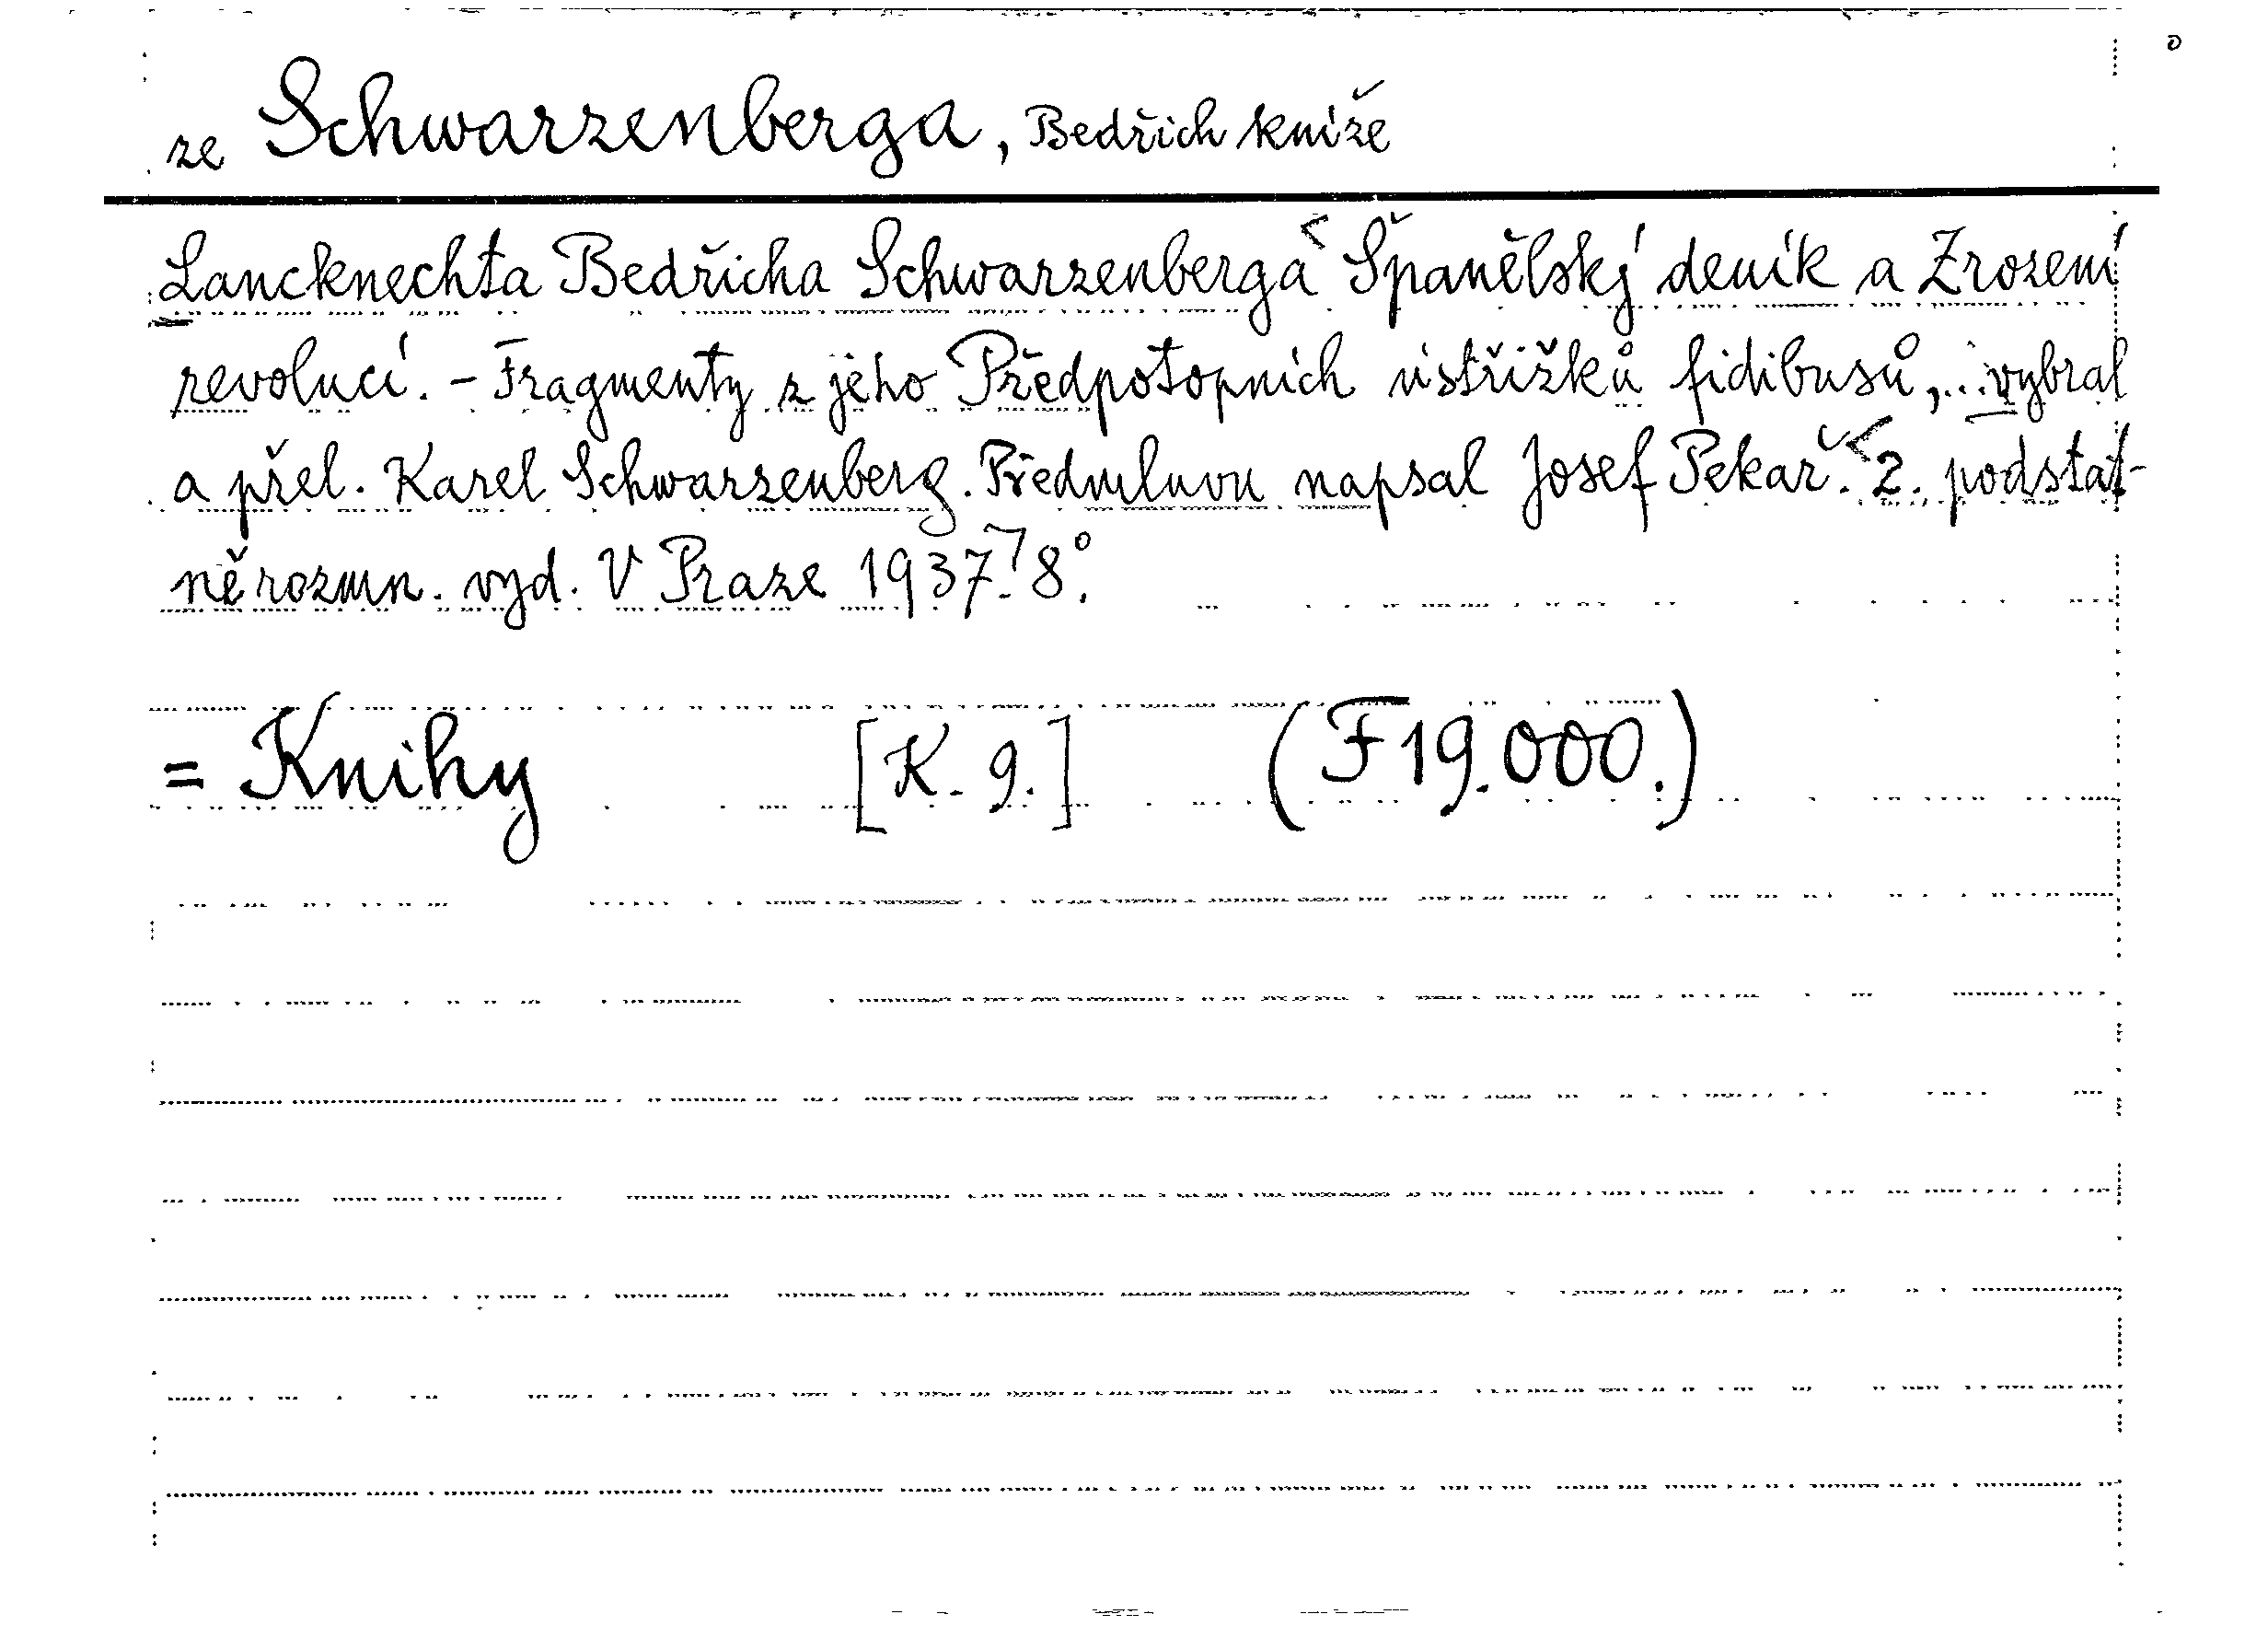 ze Schwarzenberga, Bedřich kníže
Lancknechta Bedřicha Schwarzenberga Španělský deník a Zrození
revolucí. - Fragmenty z jeho Předpotopních ústřižků fidibusů,... vybral
a přel. Karel Schwarzenberg. Předmluvu napsal Josef Pekař. 2. podstat-
ně rozmn. vyd. V Praze 1937. 8°.
= Knihy [K. 9.] (F 19.000.)